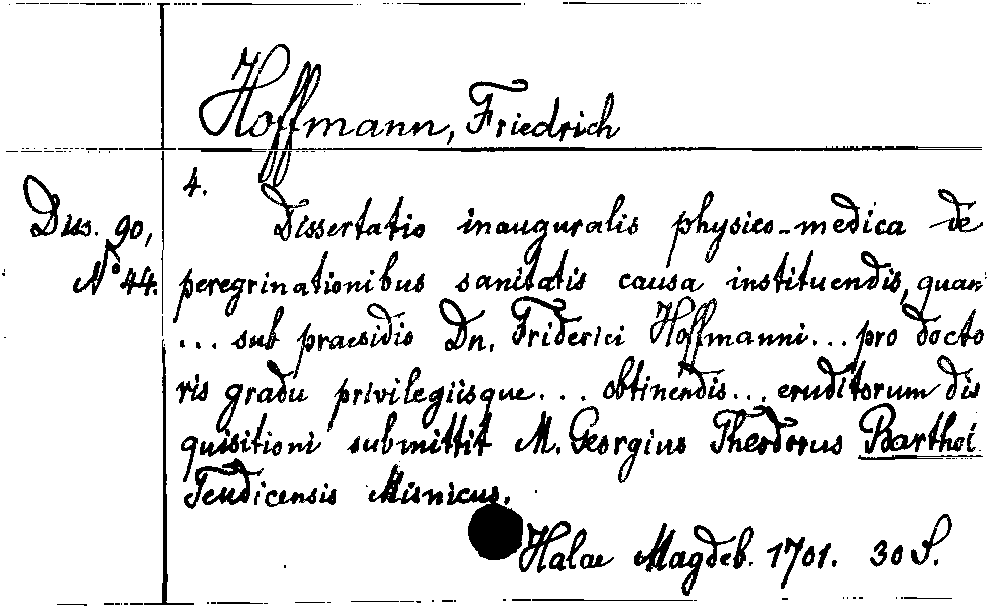 Hoffmann, Friedrich
4.
Diss. 90,
No 44.
Dissertatio inauguralis physico-medica de
peregrinationibus sanitatis causa instituendis, quam
... sub praesidio Dn. Friderici Hoffmanni... pro docto
ris gradu privilegiisque... obtinendis... eruditorum dis
quisitioni submittit M. Georgius Theodorus Barthol
Teudicensis Misnicus.
Halae Magdeb. 1701. 30 S.